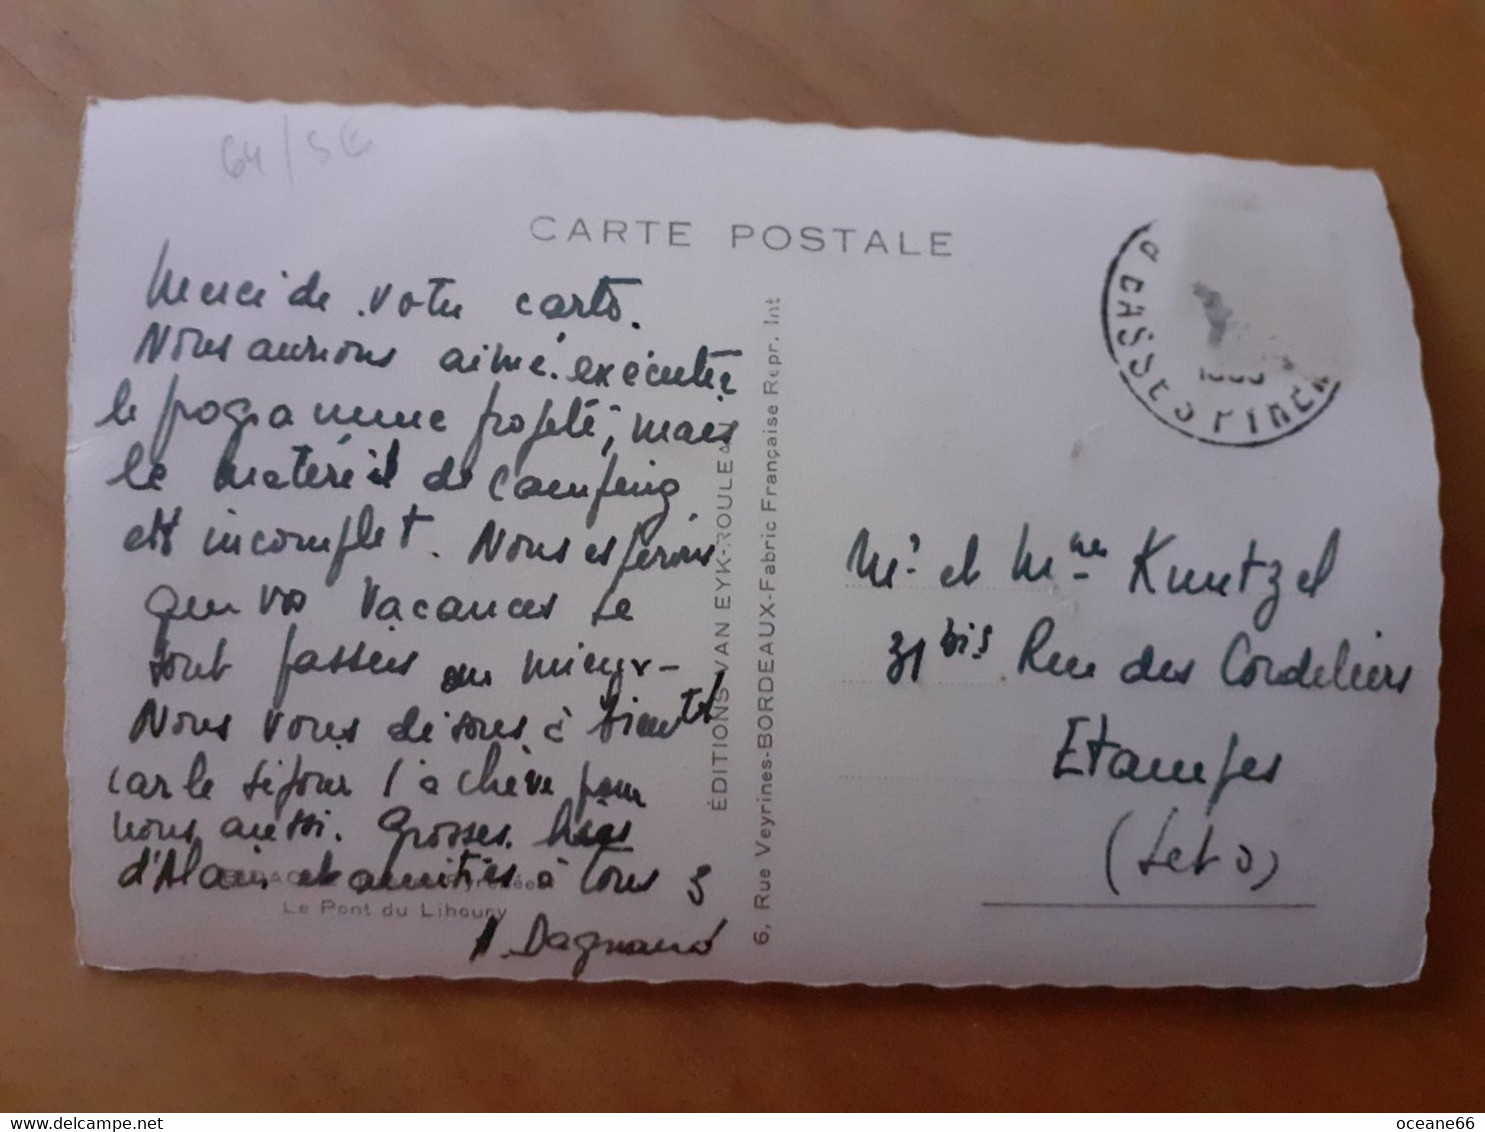 64/SE
CARTE POSTALE
Merci de votre carte.
Nous aurions aimé exécuter
le programme projeté, mais
le matériel de camping
est incomplet. Nous espérons
que vos vacances se
sont passées au mieux -
Nous vous disons à bientôt
car le séjour s'achève pour
nous aussi. Grosses bises
d'Alain et amitiés à tous 3
Le Pont du Lihoury
Dagnaud
ÉDITIONS VAN EYK-ROULEAU
6, Rue Veyrines-BORDEAUX-Fabric Française Repr. Int
BASSES PYREN
Mr et Mme Kuntzel
31 bis Rue des Cordeliers
Etampes
(Set O)
oceane66